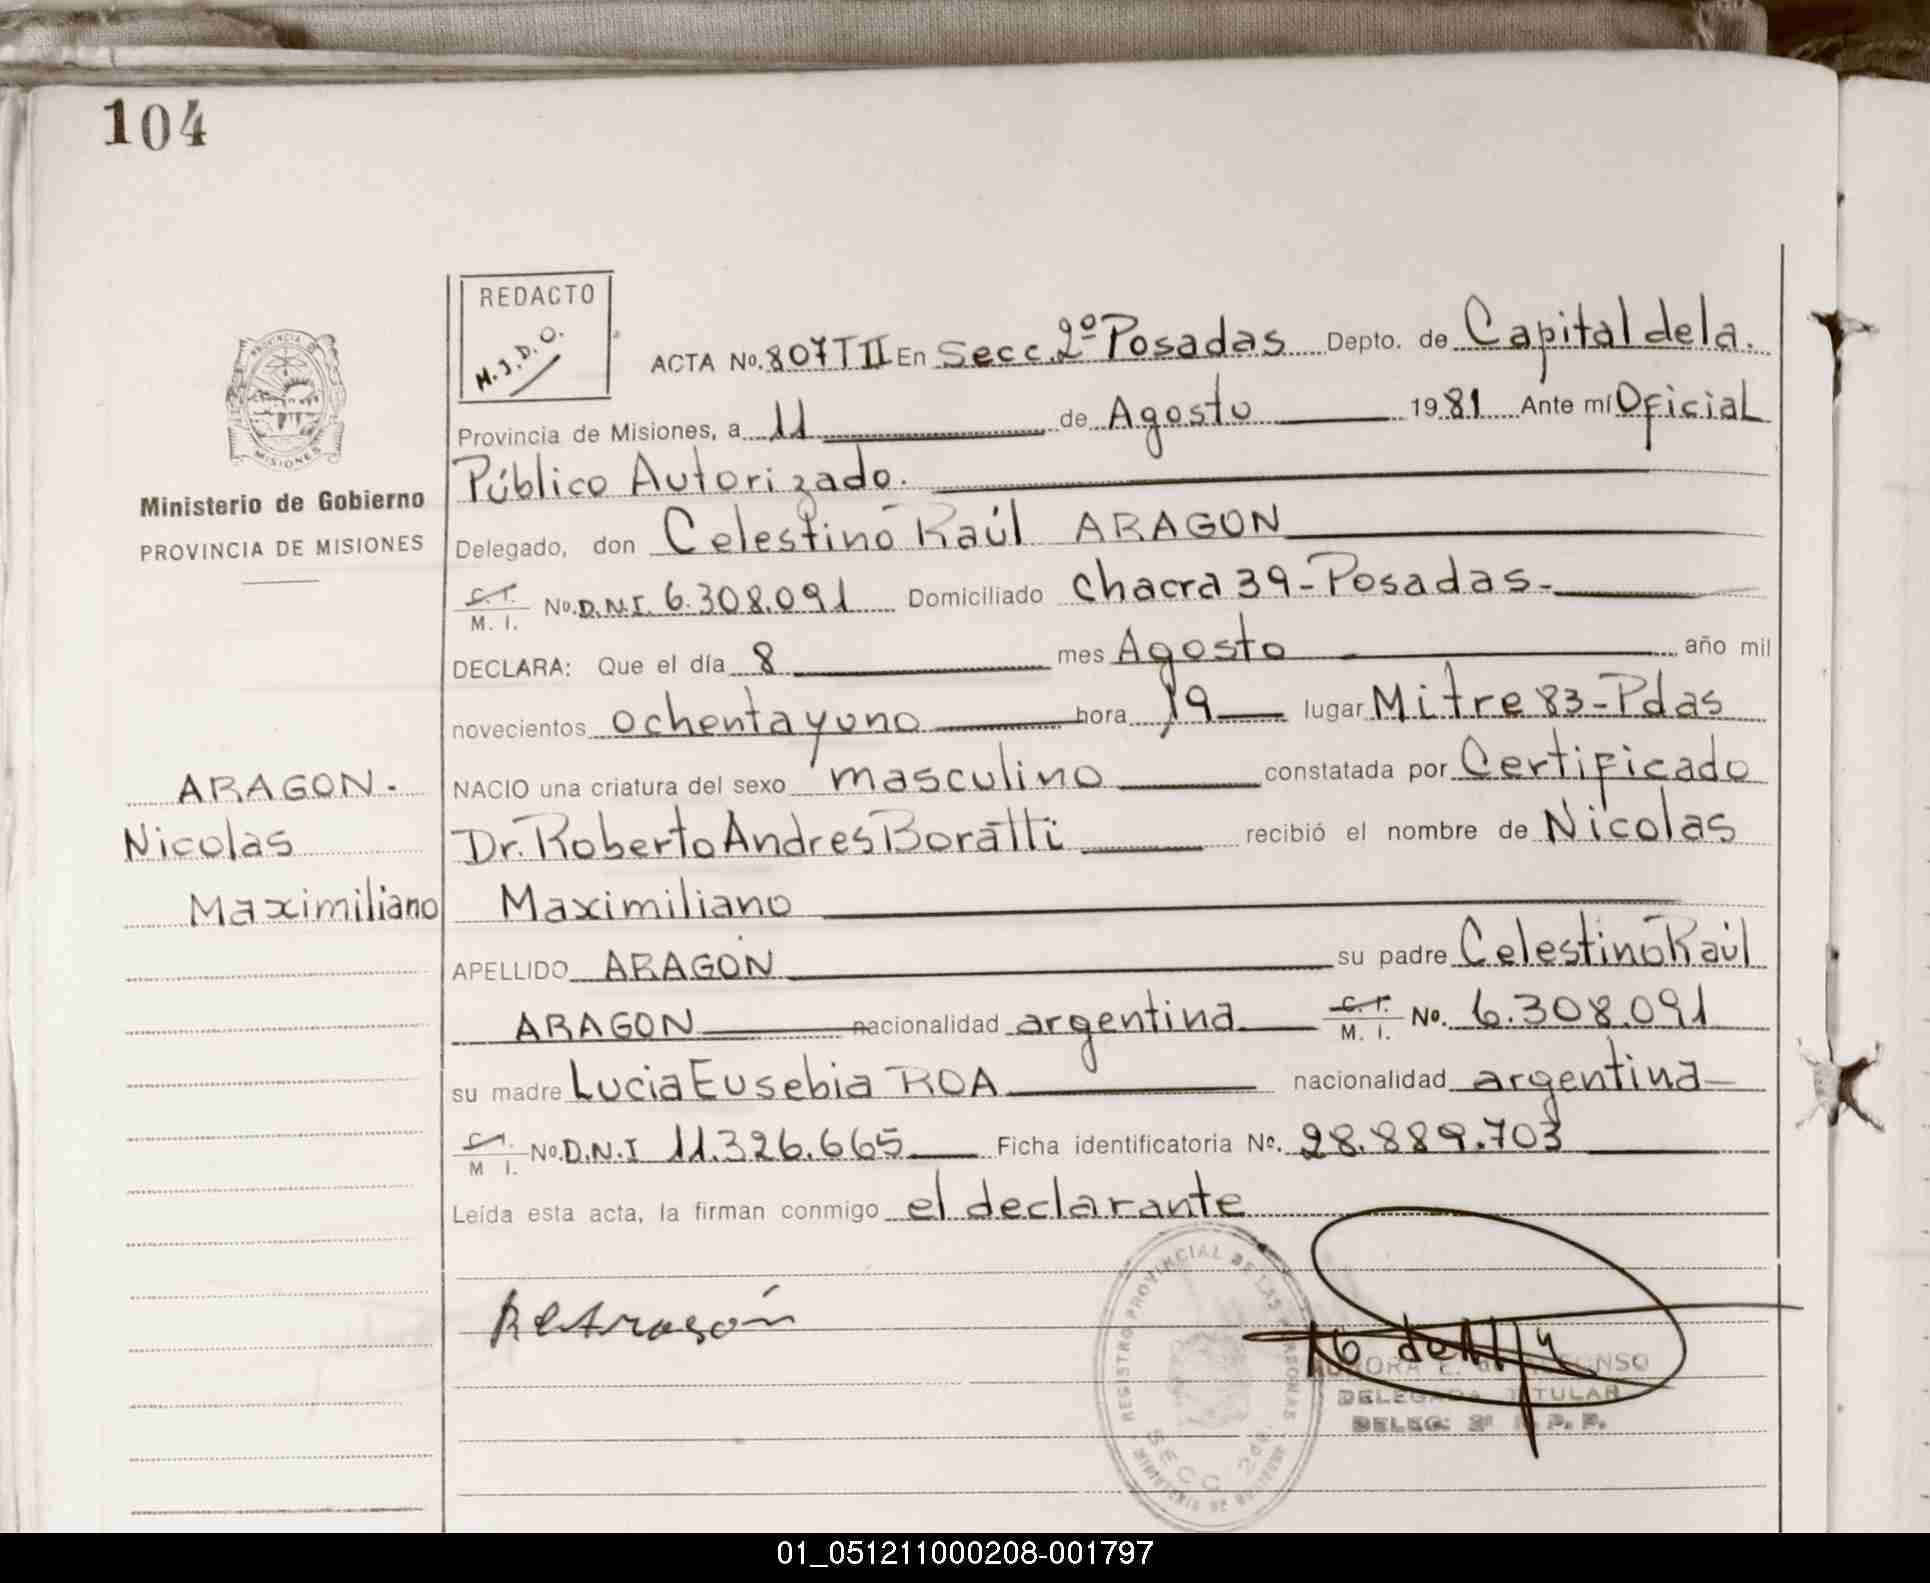 104
REDACTO
M.J.D.O.
ACTA No. 807 T II En Secc. 2º Posadas Depto. de Capital de la
Provincia de Misiones, a 11 de Agosto 1981 Ante mí Oficial
Público Autorizado.
Delegado, don Celestino Raúl ARAGON
C.I. M. I. No. D.N.I. 6.308.091 Domiciliado Chacra 39 - Posadas -
DECLARA: Que el día 8 mes Agosto año mil
novecientos ochenta y uno hora 19 lugar Mitre 83 - Pdas
NACIO una criatura del sexo masculino constatada por Certificado
Dr. Roberto Andres Boratti recibió el nombre de Nicolas
Maximiliano
APELLIDO ARAGON su padre Celestino Raúl
ARAGON nacionalidad argentina C.I. M. I. No. 6.308.091
su madre Lucia Eusebia ROA nacionalidad argentina
C.I. M I. No. D.N.I 11.326.665 Ficha identificatoria No. 28.889.703
Leída esta acta, la firman conmigo el declarante
PROVINCIA DE
MISIONES
Ministerio de Gobierno
PROVINCIA DE MISIONES
ARAGON.
Nicolas
Maximiliano
Aragón
REGISTRO PROVINCIAL DE LAS PERSONAS
SECC 2da
DELEGADA TITULAR
01_051211000208-001797